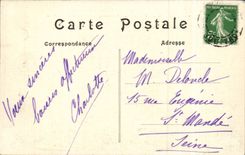 Carte Postale
Correspondance
Adresse
Vous
baisers affectueux
Charlotte
Mademoiselle
M. Delonde
15 rue Eugénie
St Mandé
Seine